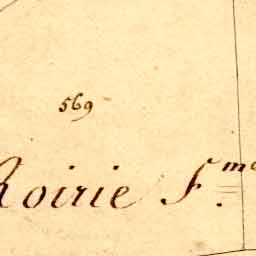 569
Roirie F.me